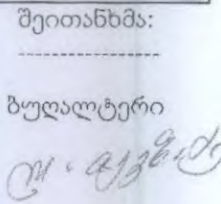 შეითანხმდა:
--------------------
ბუღალტერი